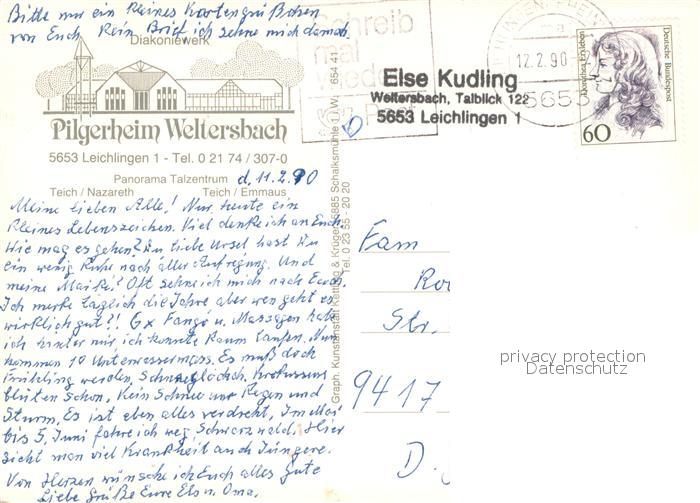 Bitte nur ein kleines Kartengrüßchen
von Euch. Kein Brief ich sehne mich danach
Diakoniewerk
Pilgerheim Weltersbach
5653 Leichlingen 1 - Tel. 0 21 74 / 307-0
Panorama Talzentrum
d. 11.2.90
Teich / Nazareth Teich / Emmaus
Meine lieben Alle! Nur heute ein
kleines Lebenszeichen. Viel denke ich an Euch
Wie mag es gehen? Du liebe Ursel hast Du
ein wenig Ruhe nach aller Aufregung. Und
meine Maike? Oft sehne ich mich nach Euch.
Ich merke täglich die Jahre aber wen geht es
wirklich gut?! 6x Fango u. Massagen habe
ich hinter mir, ich konnte kaum laufen. Nun
kommen 10 Unterwassermass. Es muß doch
Frühling werden, Schneeglöckch. Krokusse
blüten schon. Kein Schnee nur Regen und
Sturm. Es ist eben alles verdreht. Im Mai
bis 5. Juni fahre ich weg, Schwarzwald. Hier
sieht man viel Krankheit auch Jüngere.
Von Herzen wünsche ich Euch alles Gute
Liebe Grüße Eure Els u. Oma.
Graph. Kunstanstalt Kettling & Krüger, 5885 Schalksmühle 1 / W.
Tel. 0 23 55 - 20 20
654 41
Schreib
mal
wieder
Post
12.2.90
5653
Else Kudling
Weltersbach, Talblick 122
5653 Leichlingen 1
Deutsche Bundespost
Dorothea Erxleben
60
Fam
Str.
9417
D.
privacy protection
Datenschutz